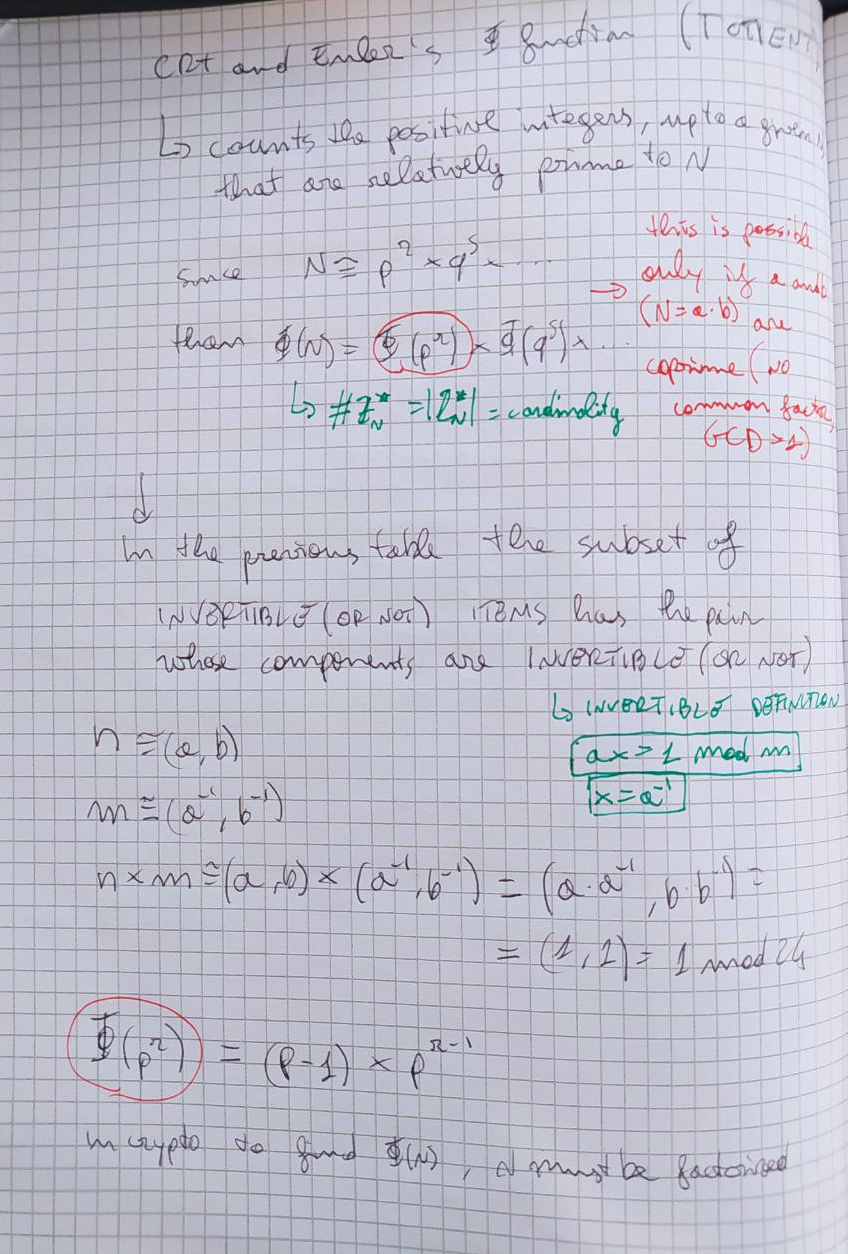 CRT and Euler's Φ function (TOTIENT)
↳ counts the positive integers, up to a given N
that are relatively prime to N
since N ≅ p^r × q^s × ...
then Φ(N) = Φ(p^r) × Φ(q^s) × ...
↳ #Z*_N = |Z*_N| = cardinality
this is possible
→ only if a and b
(N=a·b) are
coprime (NO
common factor,
GCD>1)
↓
In the previous table the subset of
INVERTIBLE (OR NOT) ITEMS has the pair
whose components are INVERTIBLE (OR NOT)
↳ INVERTIBLE DEFINITION
ax > 1 mod m
x = a^-1
n ≅ (a, b)
m ≅ (a^-1, b^-1)
n × m ≅ (a, b) × (a^-1, b^-1) = (a·a^-1, b·b^-1) =
= (1, 1) = 1 mod 24
Φ(p^r) = (p-1) × p^r-1
in crypto to find Φ(N), N must be factorized